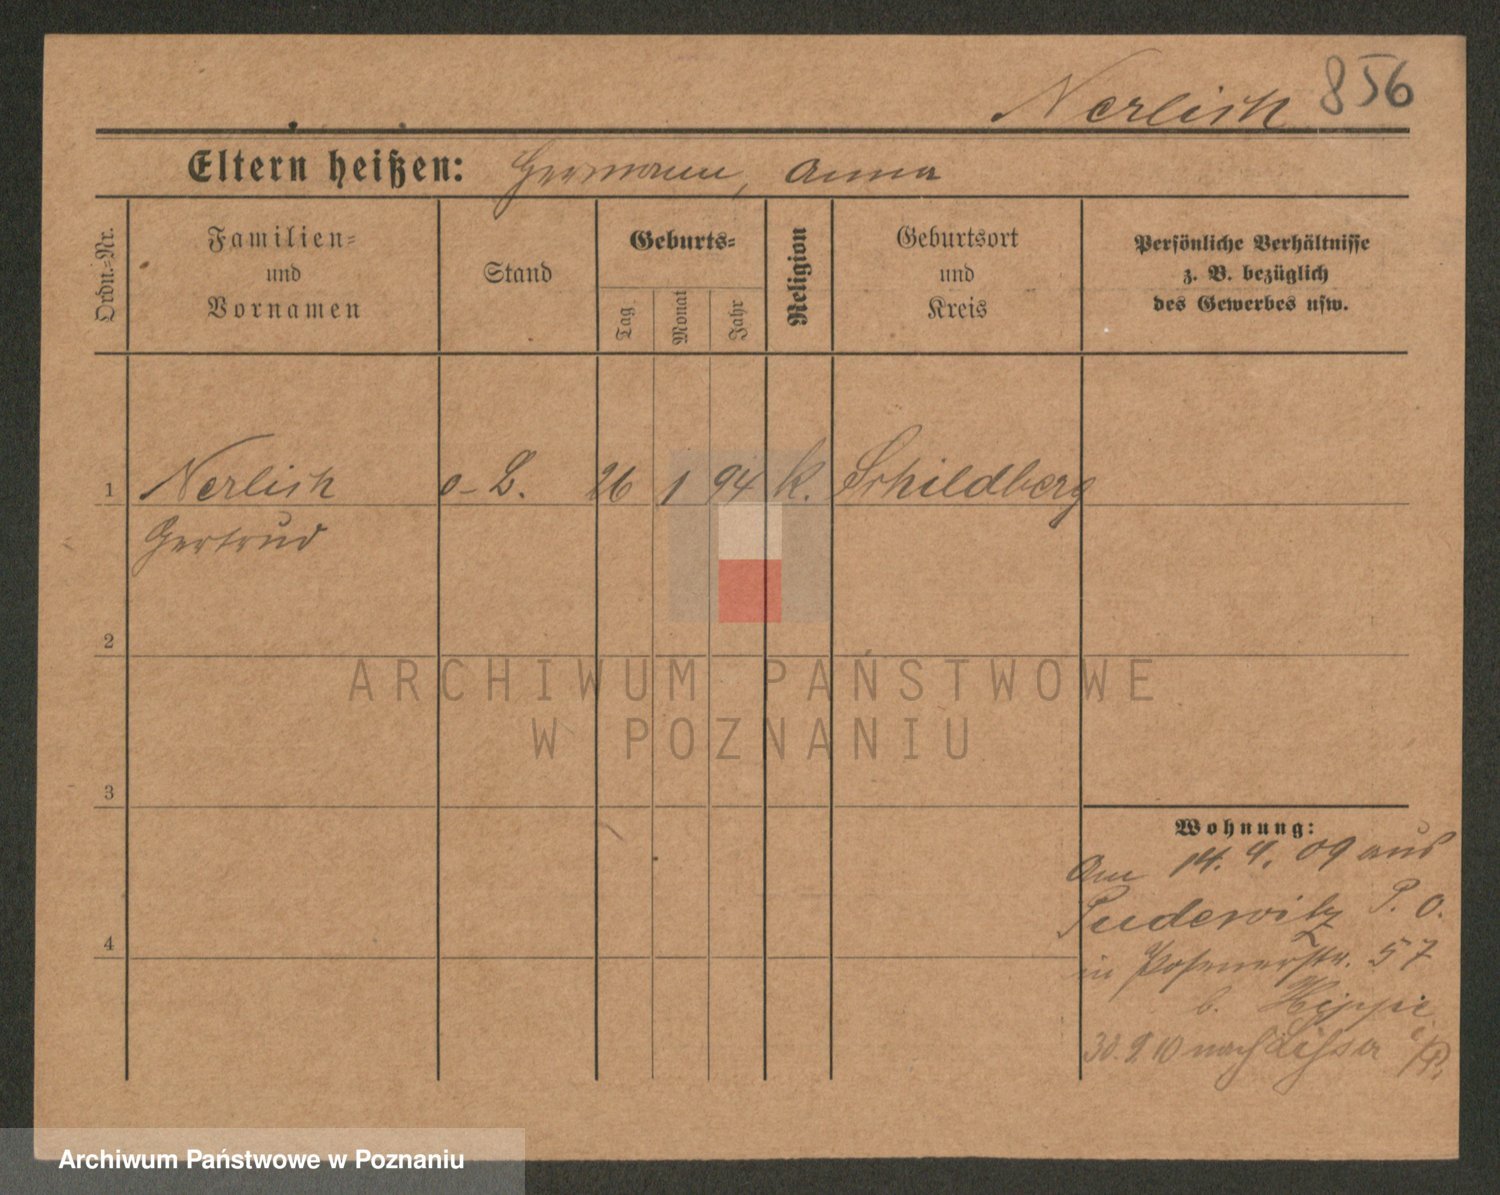 Nerlich 856
Eltern heißen: Hermann, Anna
Ordn.-Nr.
Familien-
und
Vornamen
Stand
Geburts-
Tag
Monat
Jahr
Religion
Geburtsort
und
Kreis
Persönliche Verhältnisse
z. B. bezüglich
des Gewerbes usw.
1 Nerlich o. L. 26 1 94 k. Schildberg
Gertrud
2
3
4
Wohnung:
Am 14. 4. 09 aus
Pudewitz P. O.
in Posenerstr. 57
b. Hippe
30. 9 10 nach
ARCHIWUM PAŃSTWOWE
W POZNANIU
Archiwum Państwowe w Poznaniu